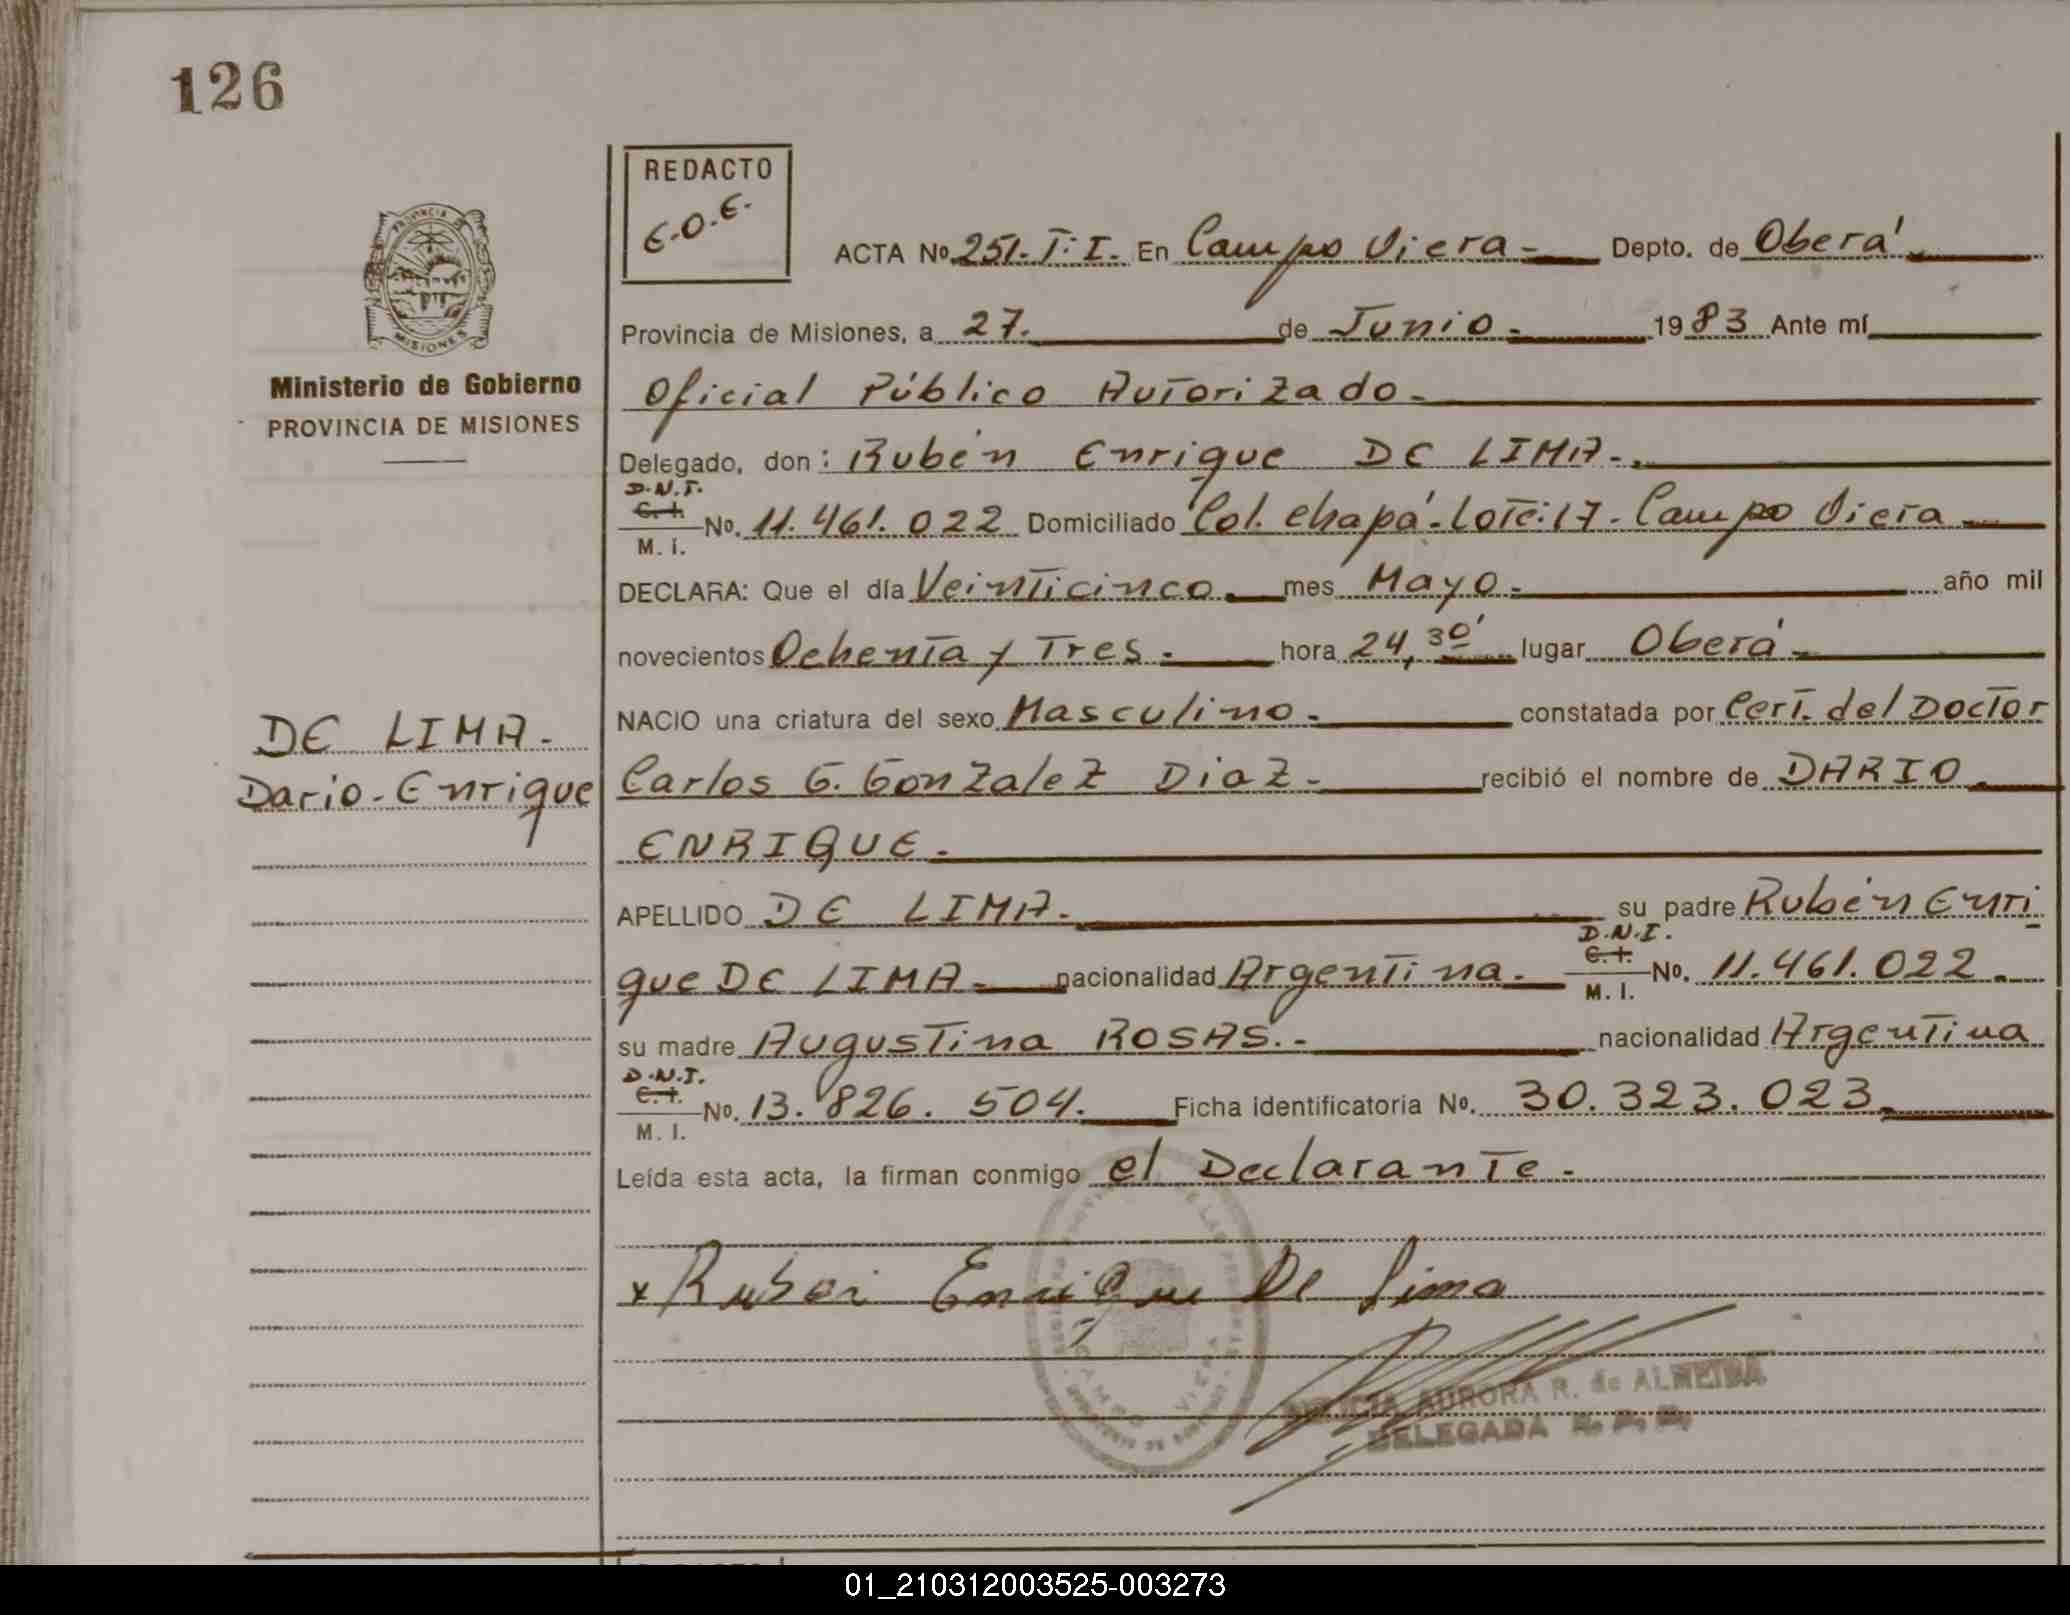 126
REDACTO
E.O.E.
PROVINCIA DE
MISIONES
Ministerio de Gobierno
PROVINCIA DE MISIONES
ACTA Nº 251. T: I. En Campo Viera - Depto. de Oberá
Provincia de Misiones, a 27. de Junio. 1983 Ante mí
Oficial Público Autorizado.
Delegado, don: Rubén Enrique DE LIMA.
D.N.I.
C. I.
M. I.
Nº. 11.461.022 Domiciliado Col. Chapá. Lote: 17. Campo Viera
DECLARA: Que el día Veinticinco. mes Mayo. año mil
novecientos Ochenta y Tres. hora 24,30' lugar Oberá
NACIO una criatura del sexo Masculino. constatada por Cert. del Doctor
DE LIMA.
Dario. Enrique
Carlos G. Gonzalez Diaz. recibió el nombre de DARIO
ENRIQUE.
APELLIDO DE LIMA. su padre Rubén Enri
D.N.I.
C. I.
M. I.
que DE LIMA nacionalidad Argentina. Nº. 11.461.022.
su madre Augustina ROSAS. nacionalidad Argentina
D.N.I.
C. I.
M. I.
Nº. 13.826.504. Ficha identificatoria Nº. 30.323.023
Leída esta acta, la firman conmigo el Declarante.
x Ruben Enrique De Lima
CAMPO VIERA
AURORA R. de ALMEIDA
DELEGADA
01_210312003525-003273